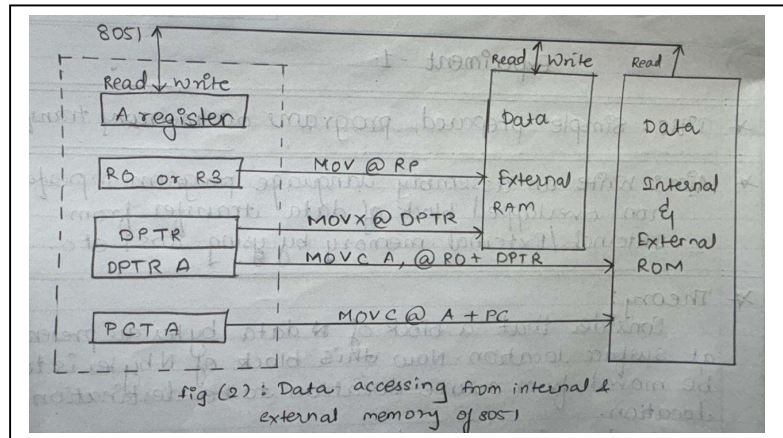 8051
Read Write
A register
R0 or R3
DPTR
DPTR A
PCT A
MOV @ RP
MOVX @ DPTR
MOVC A, @ R0 + DPTR
MOVC @ A + PC
Read Write
Data
External
RAM
Read
Data
Internal
&
External
ROM
fig (2) : Data accessing from internal &
external memory of 8051